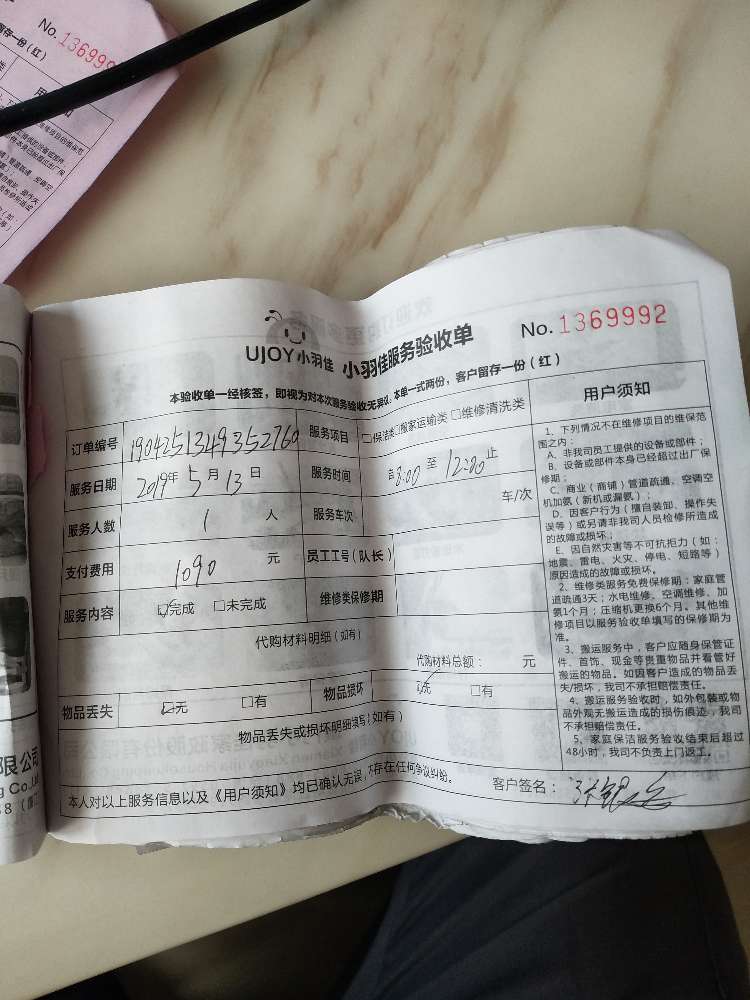 No. 136999
留存一份（红）
UJOY小羽佳 小羽佳服务验收单 No. 1369992
本验收单一经核签，即视为对本次服务验收无异议，本单一式两份，客户留存一份（红）
订单编号 1904251349352760 服务项目 □保洁类□搬家运输类 □维修清洗类
服务日期 2019年 5 月 13 日 服务时间 8:00 至 12:00 止
服务人数 1 人 服务车次 车/次
支付费用 1090 元 员工工号（队长）
服务内容 ☑完成 □未完成 维修类保修期
代购材料明细（如有）
代购材料总额： 元
物品丢失 ☑无 □有 物品损坏 ☑无 □有
物品丢失或损坏明细填写（如有）
本人对以上服务信息以及《用户须知》均已确认无误，不存在任何争议纠纷。 客户签名：
用户须知
1、下列情况不在维修项目的维保范
围之内：
A、非我司员工提供的设备或部件；
B、设备或部件本身已经超过出厂保
修期；
C、商业（商铺）管道疏通、空调空
机加氨（新机或漏氨）；
D、因客户行为（擅自装卸、操作失
误等）或另请非我司人员检修所造成
的故障或损坏；
E、因自然灾害等不可抗拒力（如：
地震、雷电、火灾、停电、短路等）
原因造成的故障或损坏。
2、维修类服务免费保修期：家庭管
道疏通3天；水电维修、空调维修、加
氨1个月；压缩机更换6个月。其他维
修项目以服务验收单填写的保修期为
准。
3、搬运服务中，客户应随身保管证
件、首饰、现金等贵重物品并看管好
搬运的物品。如因客户造成的物品丢
失/损坏，我司不承担赔偿责任。
4、搬运服务验收时，如外包装或物
品外观无搬运造成的损伤痕迹，我司
不承担赔偿责任。
5、家庭保洁服务验收结束后超过
48小时，我司不负责上门返工。
限公司
g Co.,Ltd